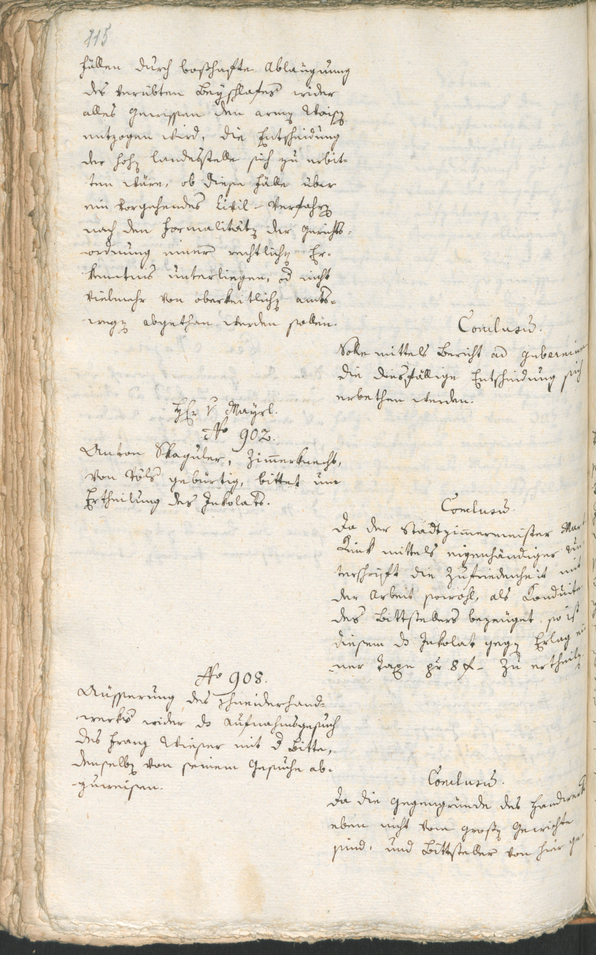 115
fällen durch boßhafte Ablaugnung
des verübten Beyschlafes wider
alles Gewissen den armen Waisen
entzogen wird, die Entscheidung
der hohen Landesstelle sich zu erbit-
ten wäre, ob diese Fälle über
ein vorgehendes Civil-Verfahren
nach den Formalitäten der Gerichts-
ordnung einer rechtlichen Er-
kenntnis unterliegen, od nicht
vielmehr von obrigkeitlichen amts-
wegen abgethan werden sollen.
Conclusum.
Solle mittels Bericht ad
die diesfällige Entscheidung sich
erbethen werden.
Hr v Mayrl.
No 902.
Anton Skaguler, Zimmerknecht,
von Töls gebürtig, bittet um
Ertheilung des Inkolats.
Conclusum.
Da der Stadtzimmermeister
mittels eigenhändiger
terschrift die Zufriedenheit mit
der Arbeit sowohl, als Conduite
des Bittstellers bezeuget, so ist
diesem ds Inkolat gegen Erlag ei
ner Taxe pr 8 f. zu ertheilen
No 908.
Äusserung des Schneiderhand-
werks wider ds Aufnahmsgesuch
des Franz Wieser mit d Bitte,
denselben von seinem Gesuche ab-
zuweisen.
Conclusum.
Da die Gegengründe des Handwerks
eben nicht von großen Gewichte
sind, und Bittsteller von hier